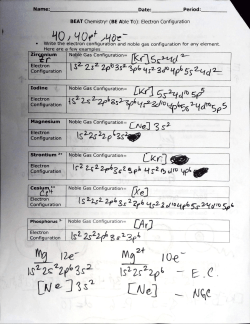 Name: Date: Period:
BEAT Chemistry! (BE Able To): Electron Configuration
40, 40e+, 40e-
• Write the electron configuration and noble gas configuration for any element.
Here are a few to practice.
Zirconium Noble Gas Configuration- [Kr] 5s² 4d²
Zr
Electron Configuration 1s² 2s² 2p⁶ 3s² 3p⁶ 4s² 3d¹⁰ 4p⁶ 5s² 4d²
Iodine Noble Gas Configuration- [Kr] 5s² 4d¹⁰ 5p⁵
Electron Configuration 1s² 2s² 2p⁶ 3s² 3p⁶ 4s² 3d¹⁰ 4p⁶ 5s² 4d¹⁰ 5p⁵
Magnesium Noble Gas Configuration- [Ne] 3s²
Electron Configuration 1s² 2s² 2p⁶ 3s²
Strontium Noble Gas Configuration- [Kr]
Electron Configuration 1s² 2s² 2p⁶ 3s² 3p⁶ 4s² 3d¹⁰ 4p⁶
Cesium Noble Gas Configuration- [Xe]
Electron Configuration 1s² 2s² 2p⁶ 3s² 3p⁶ 4s² 3d¹⁰ 4p⁶ 5s² 4d¹⁰ 5p⁶
Phosphorus Noble Gas Configuration- [Ar]
Electron Configuration 1s² 2s² 2p⁶ 3s² 3p⁶
Mg 12e- Mg²⁺ 10e-
1s² 2s² 2p⁶ 3s² 1s² 2s² 2p⁶ - E.C.
[Ne] 3s² [Ne] - NGC